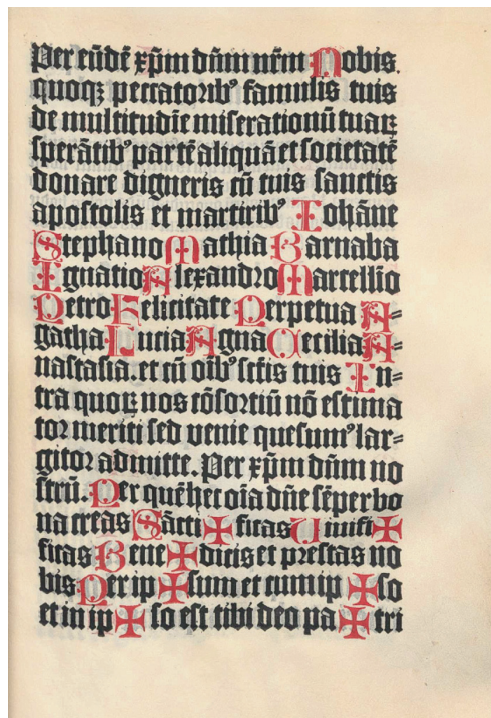 Per eūdē xp̄m dn̄m nr̄m Nobis.
quoqꝫ peccatoribꝰ famulis tuis
de multitudīe miserationū tuaꝝ
sperātibꝰ partē aliquā et societatē
donare digneris cū tuis sanctis
apostolis et martiribꝰ Iohāne
Stephano Mathia Barnaba
Ignatio Alexandro Marcellīo
Petro Felicitate Perpetua A-
gatha Lucia Agna Cecilia A-
nastasia et cū oībꝰ sctīs tuis In-
tra quoꝝ nos cōsortiū nō estima
tor meriti sed venie quesumꝰ lar-
gitor admitte. Per xp̄m dn̄m no
strū. Per quē hec oīa dn̄e sēper bo
na creas Sācti ✠ ficas Uiuifi ✠
ficas Bene ✠ dicis et prestas no
bis Per ip ✠ sum et cum ip ✠ so
et in ip ✠ so est tibi deo pa ✠ tri